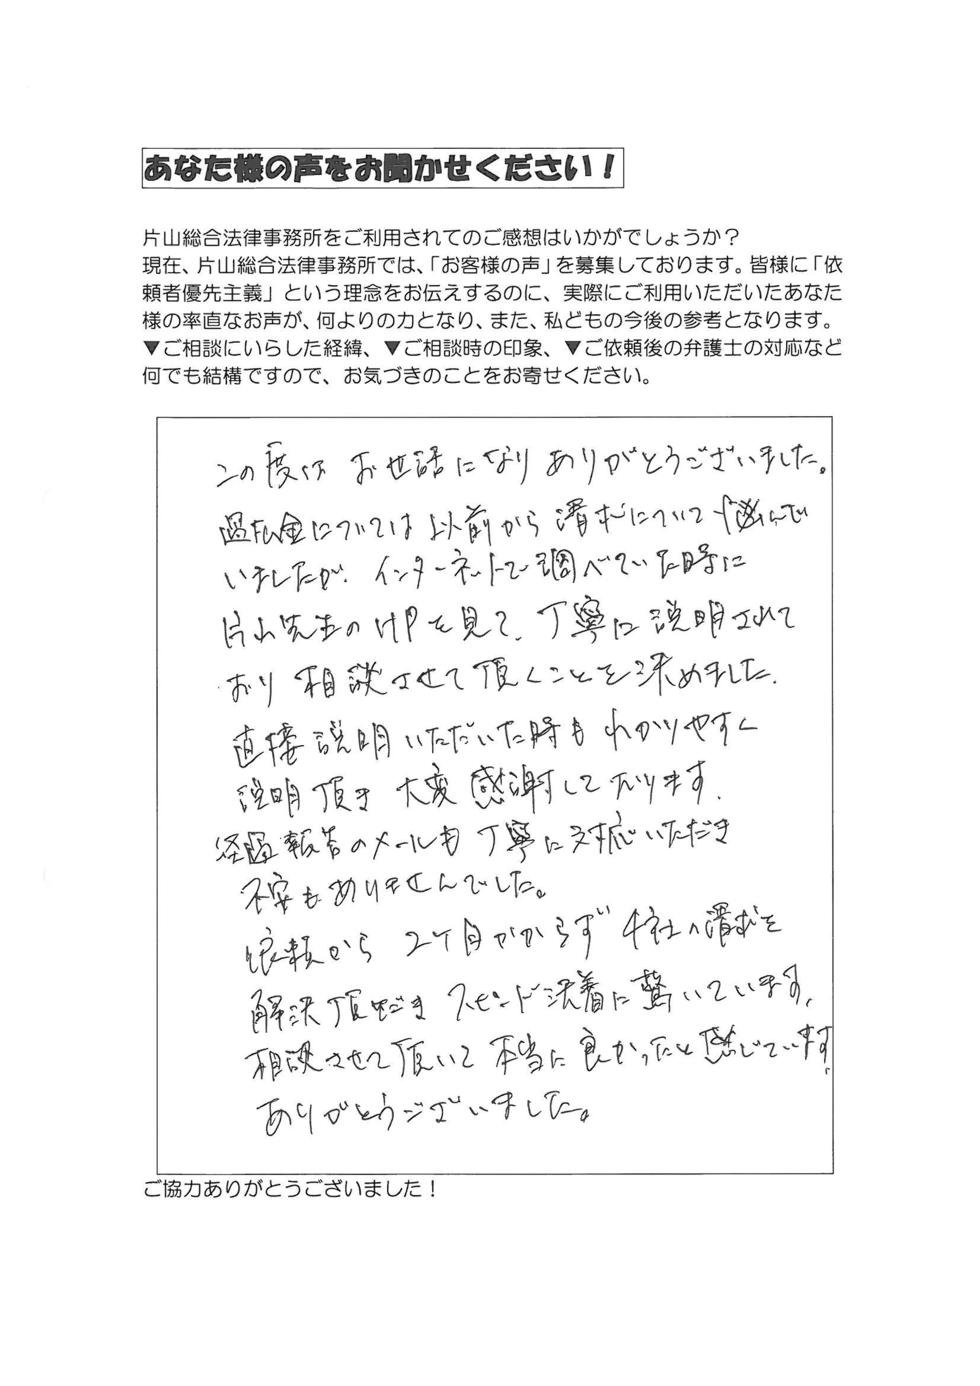 あなた様の声をお聞かせください！
片山総合法律事務所をご利用されてのご感想はいかがでしょうか？
現在、片山総合法律事務所では、「お客様の声」を募集しております。皆様に「依
頼者優先主義」という理念をお伝えするのに、実際にご利用いただいたあなた
様の率直なお声が、何よりの力となり、また、私どもの今後の参考となります。
▼ご相談にいらした経緯、▼ご相談時の印象、▼ご依頼後の弁護士の対応など
何でも結構ですので、お気づきのことをお寄せください。
この度は お世話になり ありがとうございました。
過払金については以前から請求について悩んで
いましたが、インターネットで調べていた時に
片山先生のHPを見て、丁寧に説明されて
おり 相談させて頂くことを決めました。
直接説明いただいた時も わかりやすく
説明頂き 大変感謝しております。
経過報告のメールも丁寧に対応いただき
不安もありませんでした。
依頼から 2ヶ月かからず 4社の請求を
解決頂だき スピード決着に驚いています。
相談させて頂いて 本当に良かったと感じています。
ありがとうございました。
ご協力ありがとうございました！